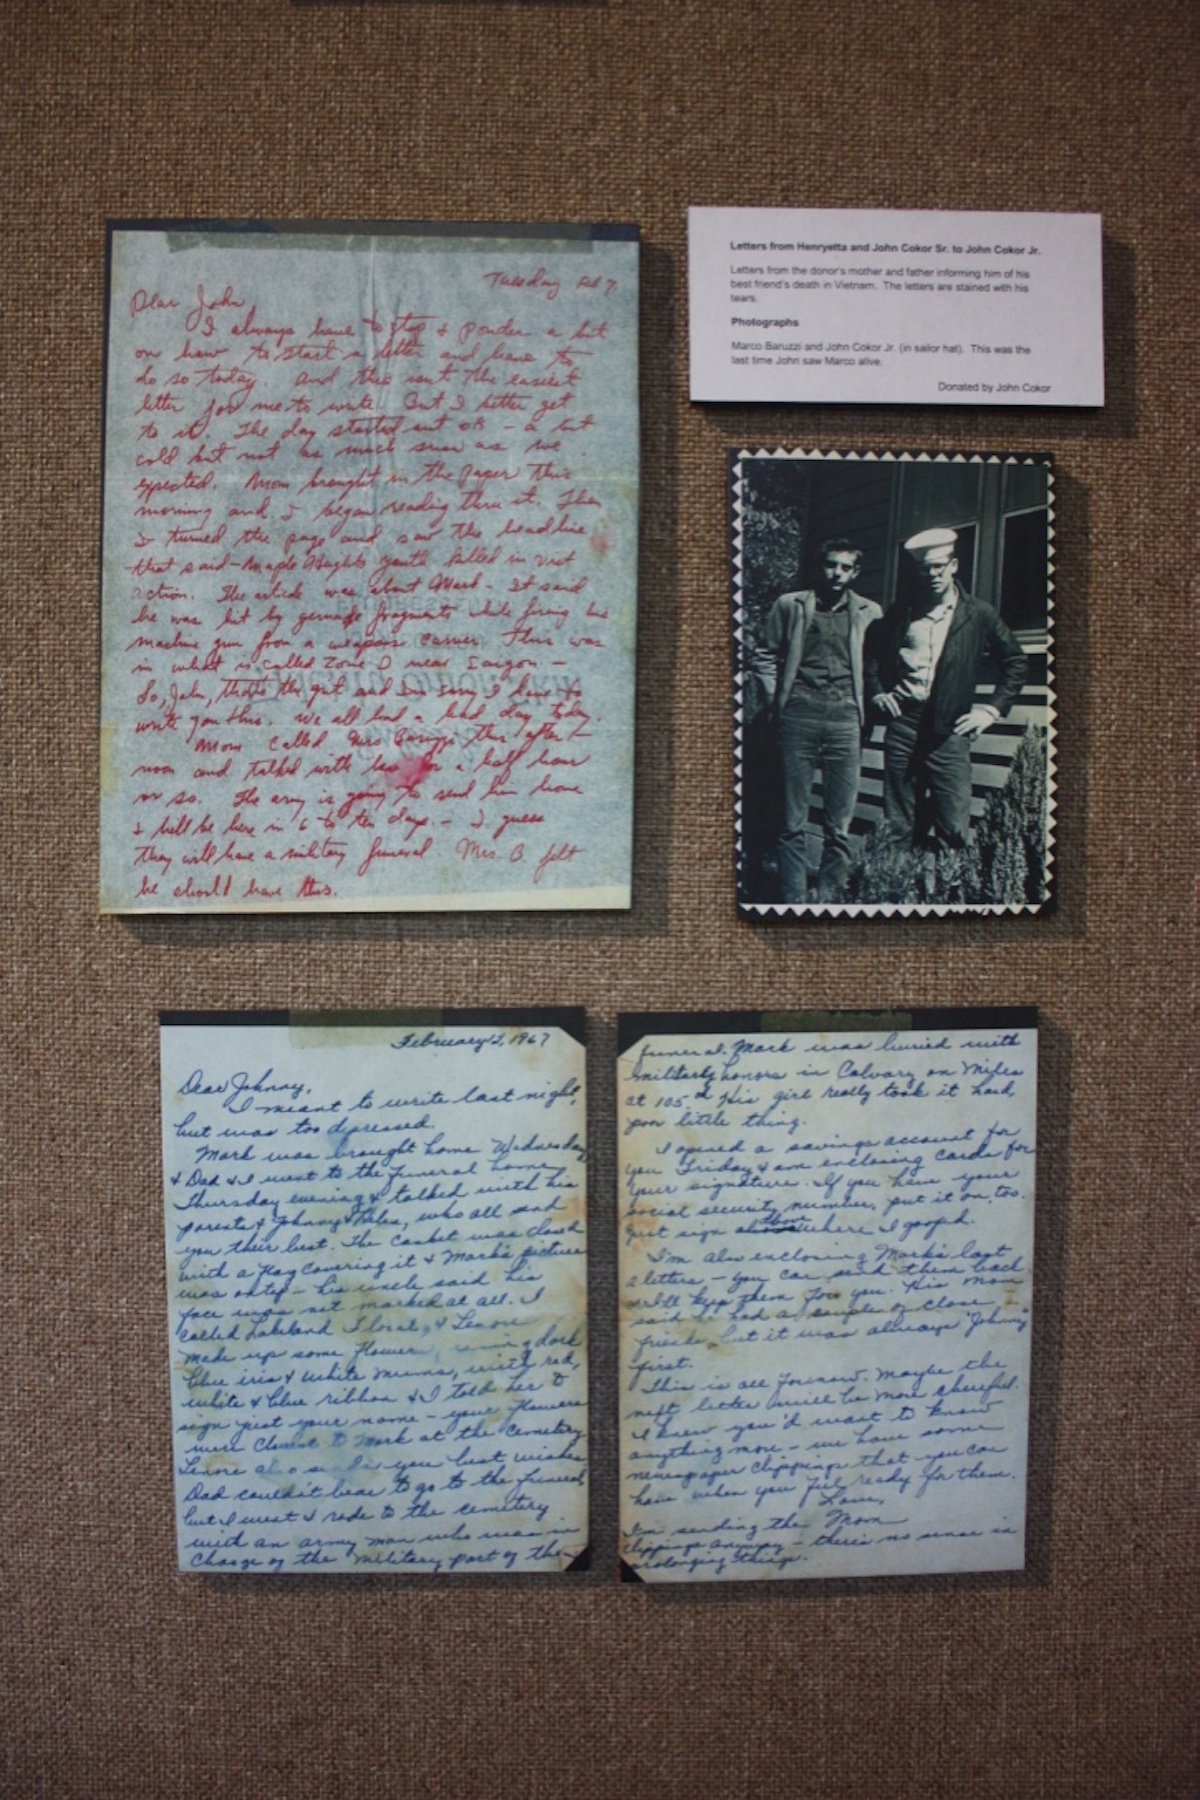 Tuesday Feb 7,
Dear John,
I always have to stop & ponder a bit
on how to start a letter and have to
do so today. And this isnt the easiest
letter for me to write. But I better get
to it. The day started out ok – a bit
cold but not as much snow as we
expected. Mom brought in the paper this
morning and I began reading thru it. Then
I turned the page and saw the headline
that said – Maple Heights youth killed in viet
action. The article was about Mark – It said
he was hit by fragments while firing his
machine gun from a weapons carrier. This was
in what is called Zone D near Saigon –
So, John, that's the gist and I'm sorry I have to
write you this. We all had a bad day today.
Mom called Mrs Baruzzi this after –
noon and talked with her for a half hour
or so. The army is going to send him home
& he'll be here in 6 to ten days. – I guess
they will have a military funeral. Mrs. B felt
he should have this.
Letters from Henryetta and John Cokor Sr. to John Cokor Jr.
Letters from the donor's mother and father informing him of his
best friend's death in Vietnam. The letters are stained with his
tears.
Photographs
Marco Baruzzi and John Cokor Jr. (in sailor hat). This was the
last time John saw Marco alive.
Donated by John Cokor
February 1967
Dear Johnny,
I meant to write last night,
but was too depressed.
Mark was brought home Wednesday
& Dad & I went to the funeral home
Thursday evening & talked with his
parents & Johnny & Helen, who all send
you their best. The casket was closed
with a flag covering it & Mark's picture
was on top – his uncle said his
face was not marked at all. I
called Lakeland Floral, & Lenore
made up some flowers, using dark
blue iris & white mums, with red,
white & blue ribbon & I told her to
sign just your name – your flowers
were closest to Mark at the cemetery
Lenore also sends you best wishes
Dad couldn't bear to go to the funeral,
but I went & rode to the cemetery
with an army man who was in
charge of the military part of the
funeral. Mark was buried with
military honors in Calvary on Miles
at 105th His girl really took it hard,
poor little thing.
I opened a savings account for
you Friday & am enclosing cards for
your signature. If you have your
social security number, put it on, too.
Just sign above where I goofed.
I'm also enclosing Mark's last
2 letters – you can send them back
& I'll keep them for you. His Mom
said he had a couple of close
friends, but it was always "Johnny"
first.
This is all for now. Maybe the
next letter will be more cheerful.
I knew you'd want to know
anything more – we have some
newspaper clippings that you can
have when you feel ready for them.
Love,
Mom
I'm sending the
clippings anyway – there's no sense in
prolonging things.